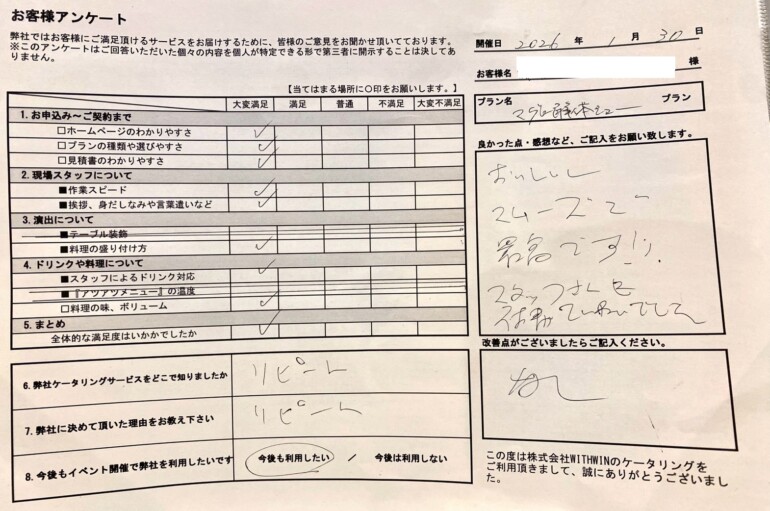 お客様アンケート
弊社ではお客様にご満足頂けるサービスをお届けするために、皆様のご意見をお聞かせ頂いております。
※このアンケートはご回答いただいた個々の内容を個人が特定できる形で第三者に開示することは決してありません。
開催日 2026 年 1 月 30 日
お客様名 様
プラン名 プラン
【当てはまる場所に〇印をお願いします。】
大変満足 満足 普通 不満足 大変不満足
1. お申込み～ご契約まで
□ホームページのわかりやすさ ✓
□プランの種類や選びやすさ ✓
□見積書のわかりやすさ ✓
2. 現場スタッフについて
■作業スピード ✓
■挨拶、身だしなみや言葉遣いなど ✓
3. 演出について
■テーブル装飾
■料理の盛り付け方 ✓
4. ドリンクや料理について ✓
■スタッフによるドリンク対応
■『アツアツメニュー』の温度
□料理の味、ボリューム ✓
5. まとめ
全体的な満足度はいかかでしたか ✓
6. 弊社ケータリングサービスをどこで知りましたか リピート
7. 弊社に決めて頂いた理由をお教え下さい リピート
8. 今後もイベント開催で弊社を利用したいです 今後も利用したい / 今後は利用しない
良かった点・感想など、ご記入をお願い致します。
おいしいし
スムーズで
最高です!!
スタッフさんも
ていねいでした
改善点がございましたらご記入ください。
なし
この度は株式会社WITHWINのケータリングを
ご利用頂きまして、誠にありがとうございまし
た。